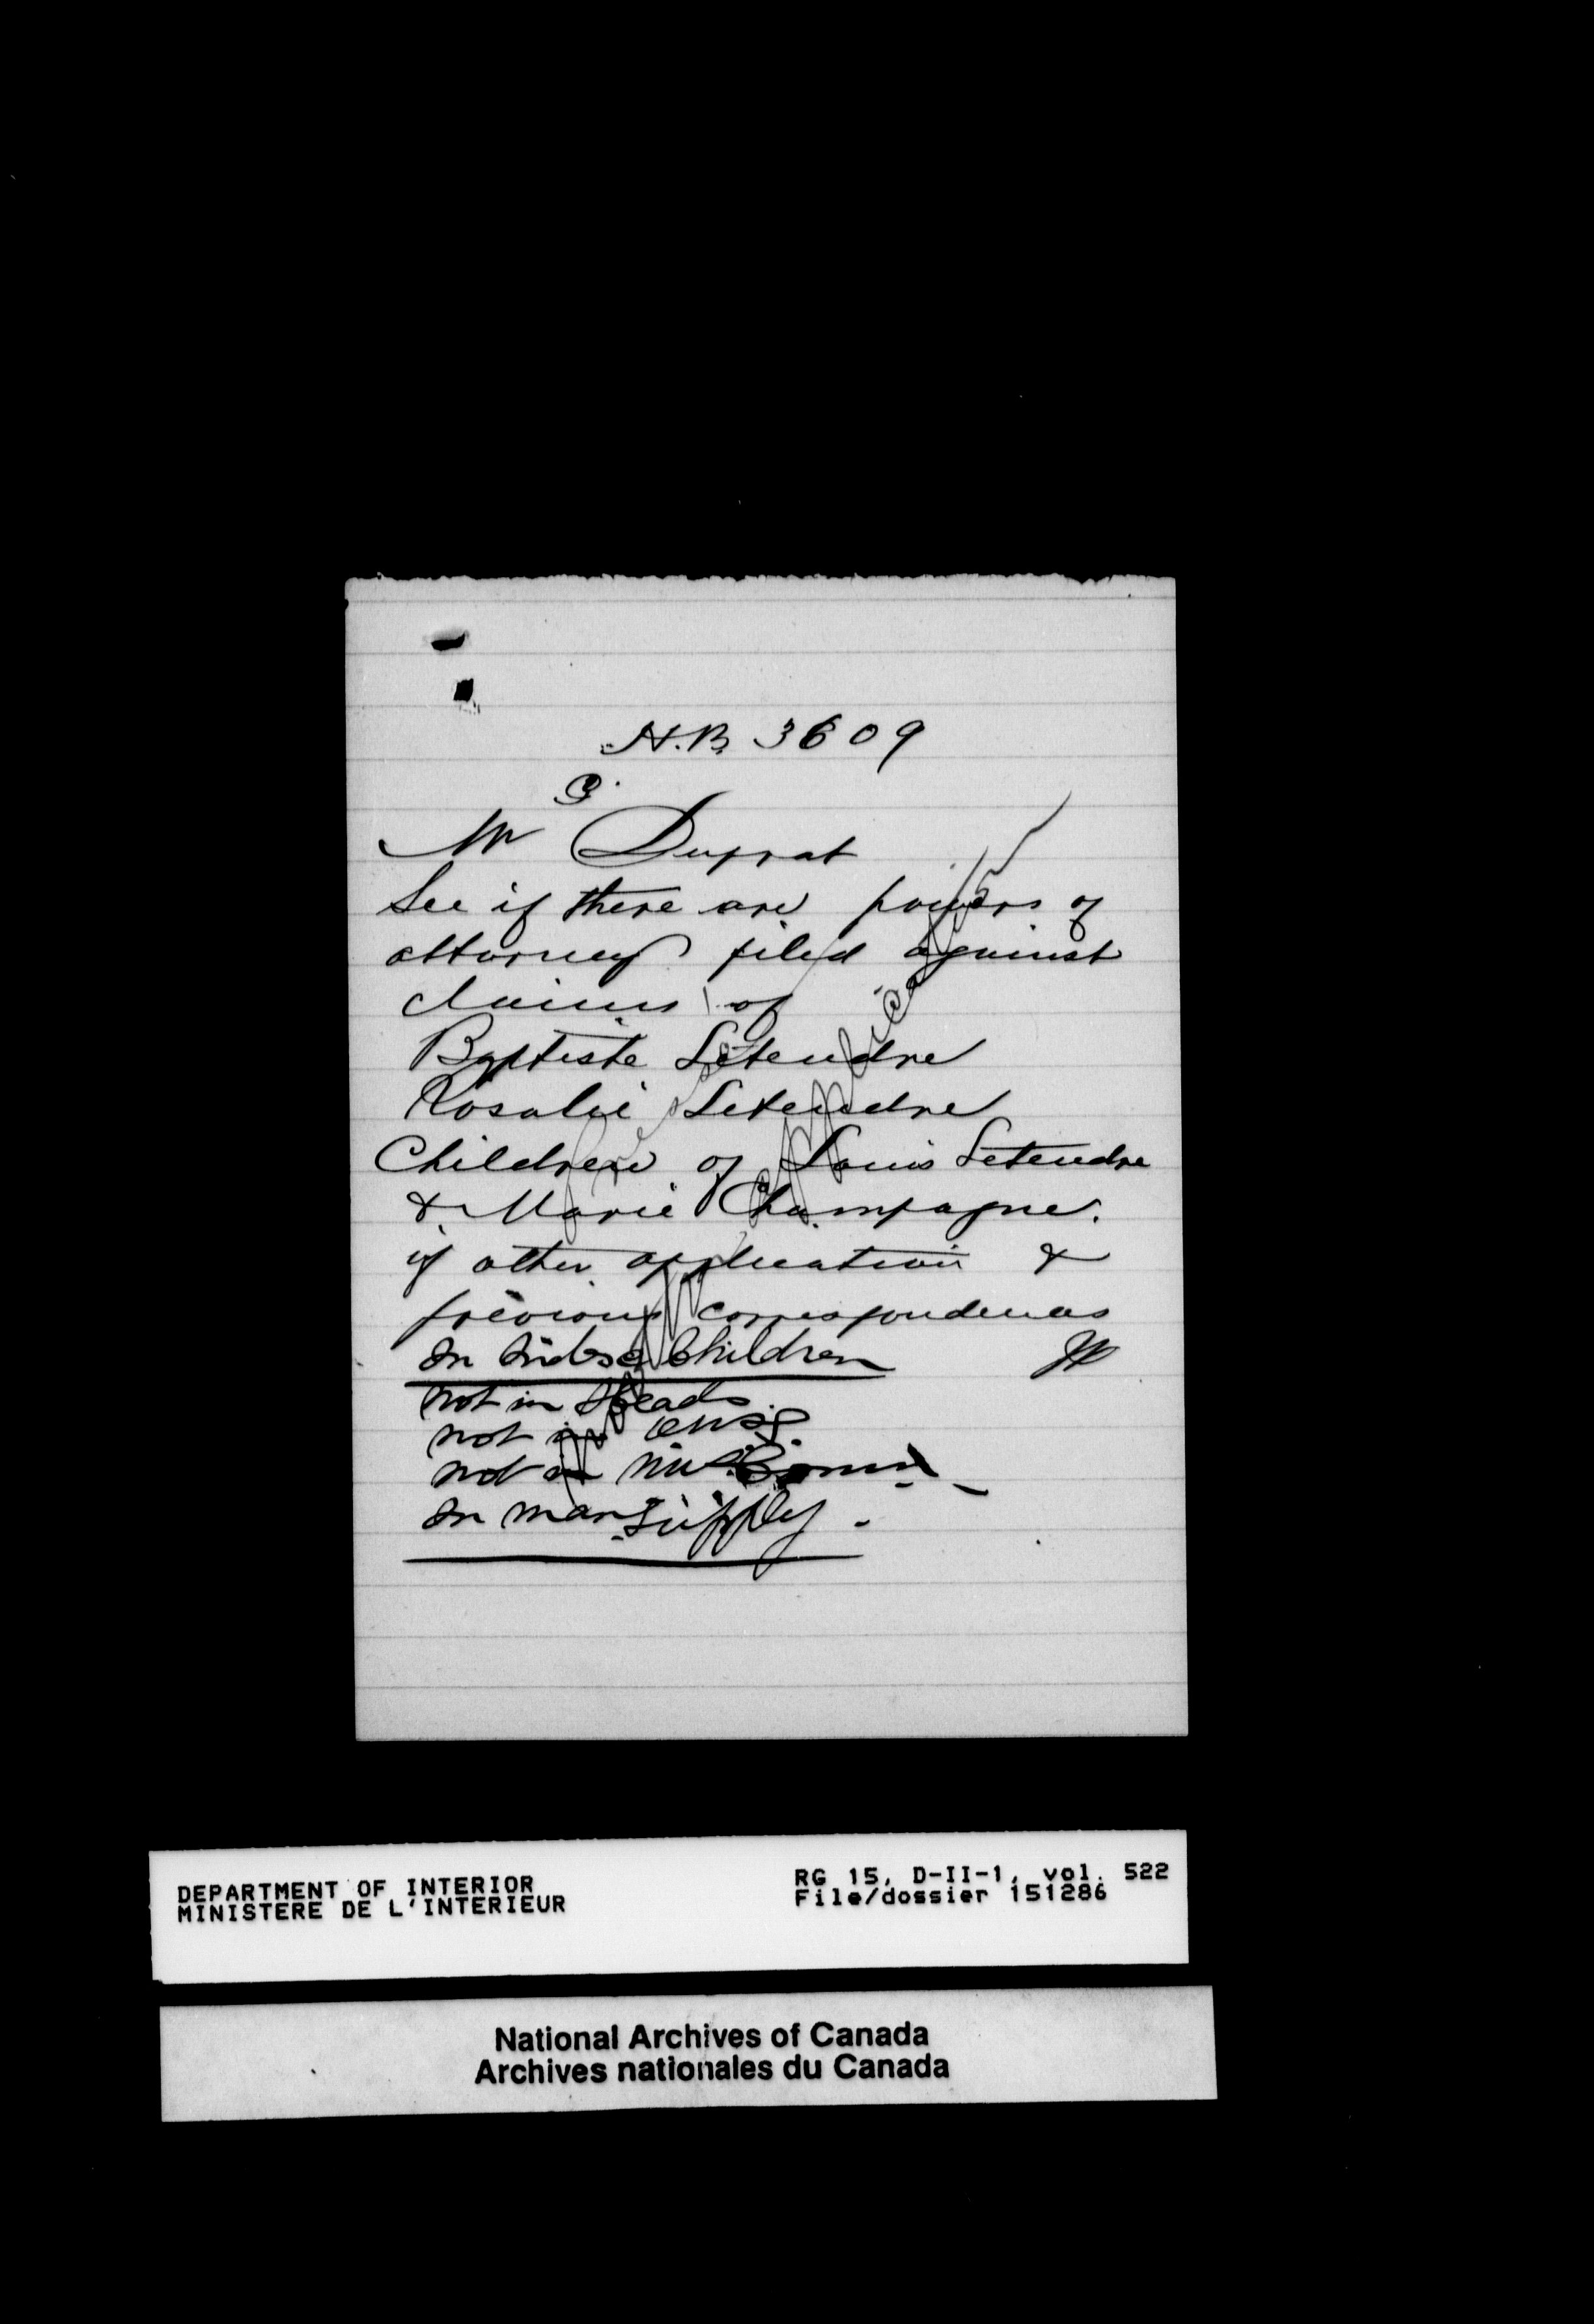 H.B. 3609
G.
Mr Duprat
See if there are powers of
attorney filed against
claims of
Baptiste Letendre
Rosalie Letendre
Children of Louis Letendre
& Marie Champagne.
if other application &
previous correspondences
in Index Children
not in Heads
not in
not in
in man supply.
DEPARTMENT OF INTERIOR
MINISTERE DE L'INTERIEUR
RG 15, D-II-1, vol. 522
File/dossier 151286
National Archives of Canada
Archives nationales du Canada